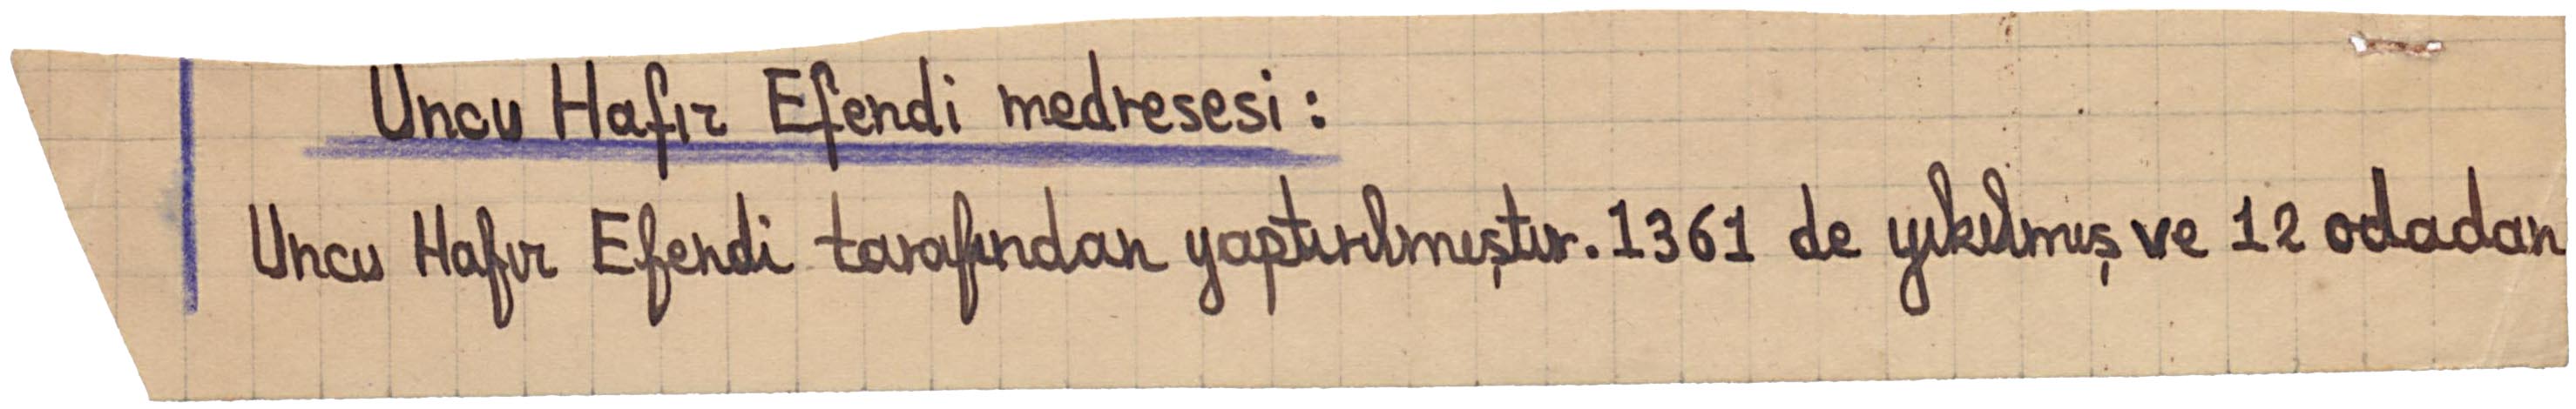 Uncu Hafız Efendi medresesi:
Uncu Hafız Efendi tarafından yaptırılmıştır. 1361 de yıkılmış ve 12 odadan